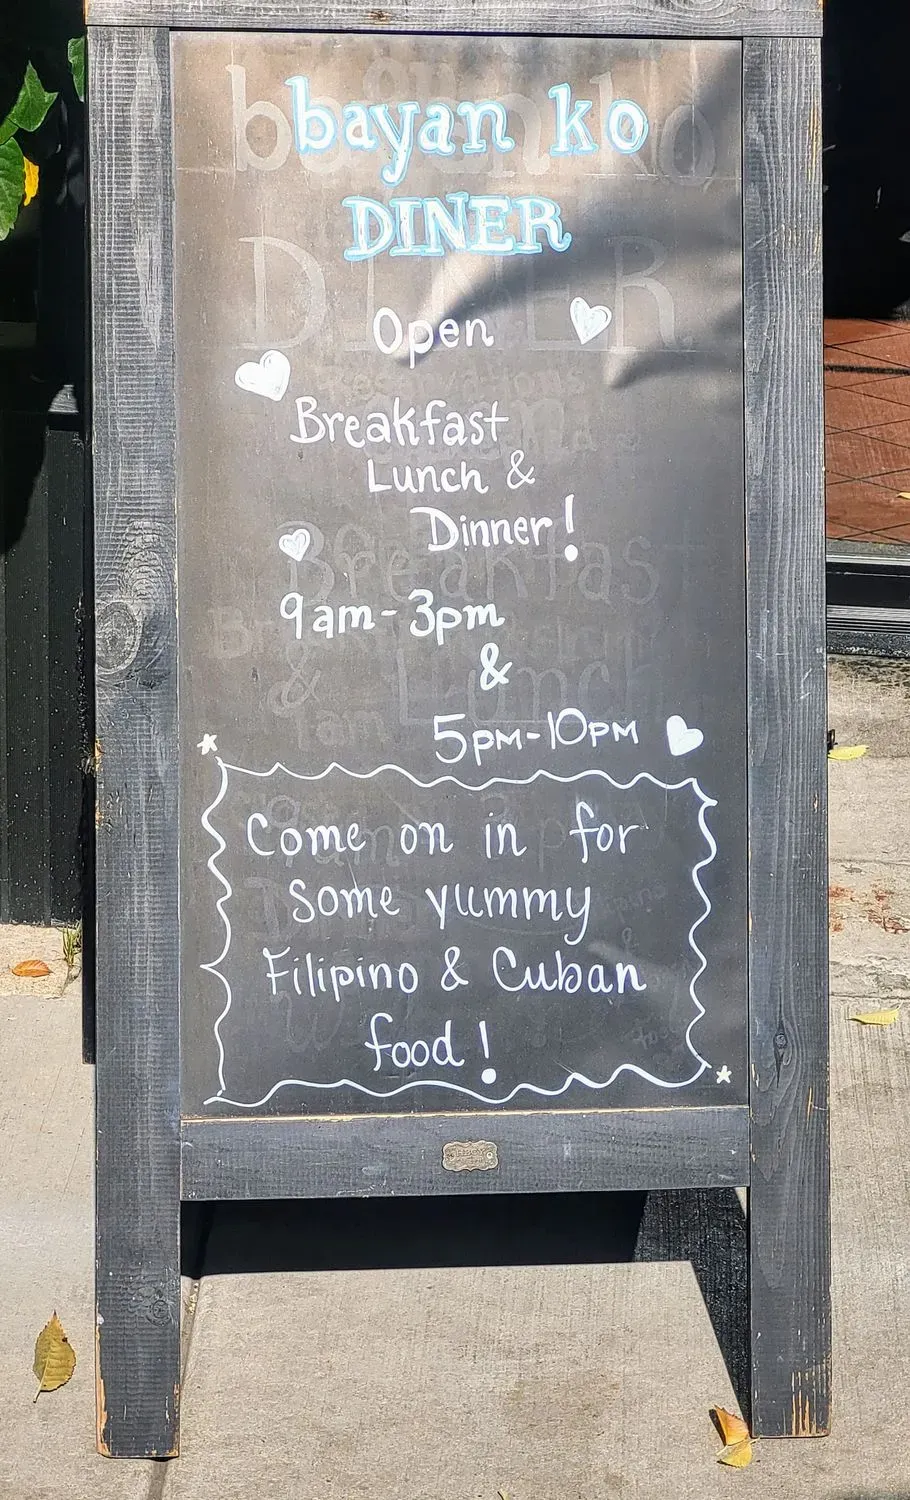 bayan ko
DINER
Open
Breakfast
Lunch &
Dinner!
9am-3pm
&
5PM-10PM
Come on in for
some yummy
Filipino & Cuban
food!